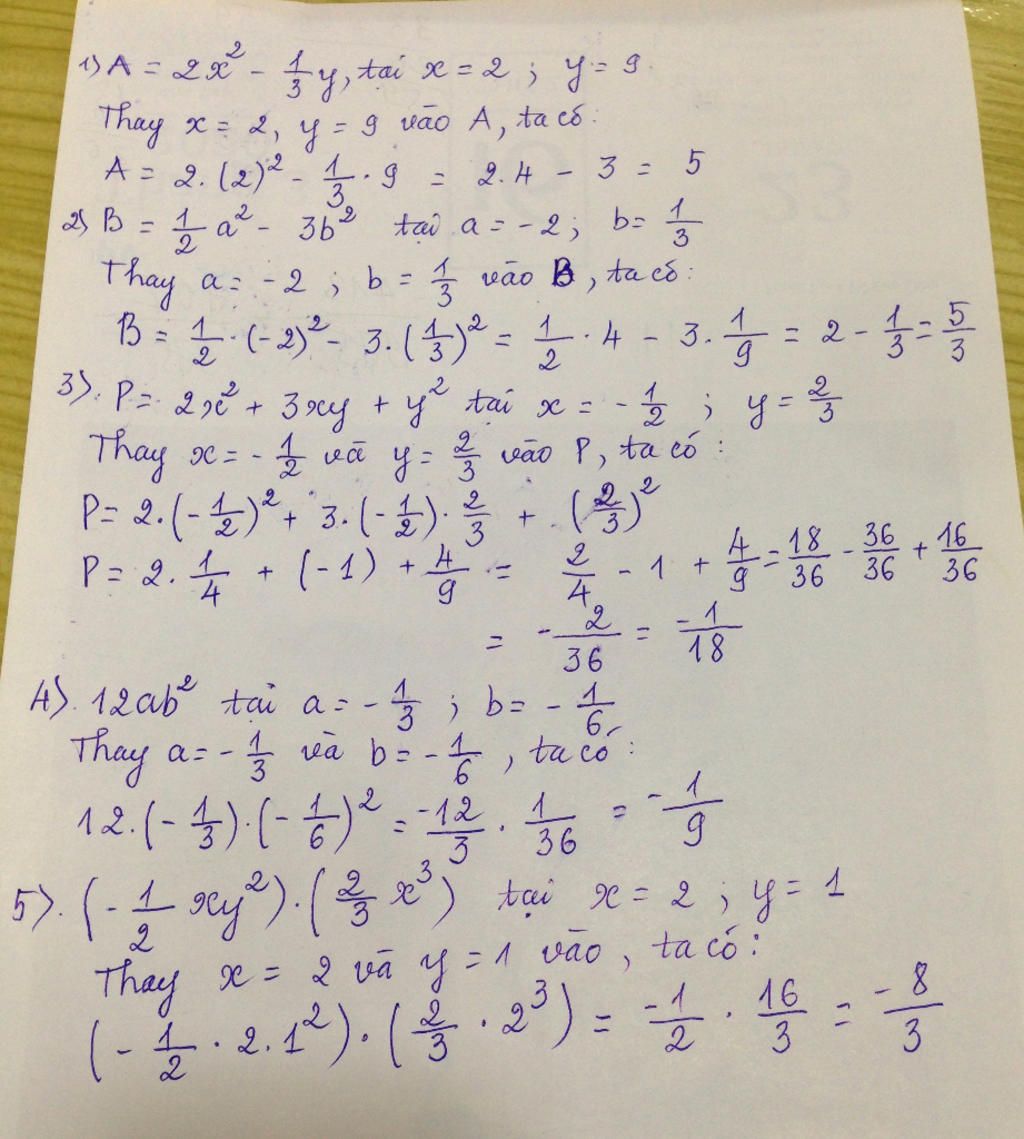 1) A = 2x² - 1/3 y, tại x = 2 ; y = 9
Thay x = 2, y = 9 vào A, ta có:
A = 2.(2)² - 1/3 . 9 = 2.4 - 3 = 5
2) B = 1/2 a² - 3b² tại a = -2; b = 1/3
Thay a = -2 ; b = 1/3 vào B, ta có:
B = 1/2 . (-2)² - 3.(1/3)² = 1/2 . 4 - 3. 1/9 = 2 - 1/3 = 5/3
3). P = 2x² + 3xy + y² tại x = -1/2 ; y = 2/3
Thay x = -1/2 và y = 2/3 vào P, ta có :
P = 2.(-1/2)² + 3.(-1/2) . 2/3 + (2/3)²
P = 2. 1/4 + (-1) + 4/9 = 2/4 - 1 + 4/9 = 18/36 - 36/36 + 16/36
= -2/36 = -1/18
4). 12ab² tại a = -1/3 ; b = -1/6
Thay a = -1/3 và b = -1/6 , ta có :
12.(-1/3).(-1/6)² = -12/3 . 1/36 = -1/9
5). (-1/2 xy²).(2/3 x³) tại x = 2 ; y = 1
Thay x = 2 và y = 1 vào , ta có :
(-1/2 . 2.1²).(2/3 . 2³) = -1/2 . 16/3 = -8/3